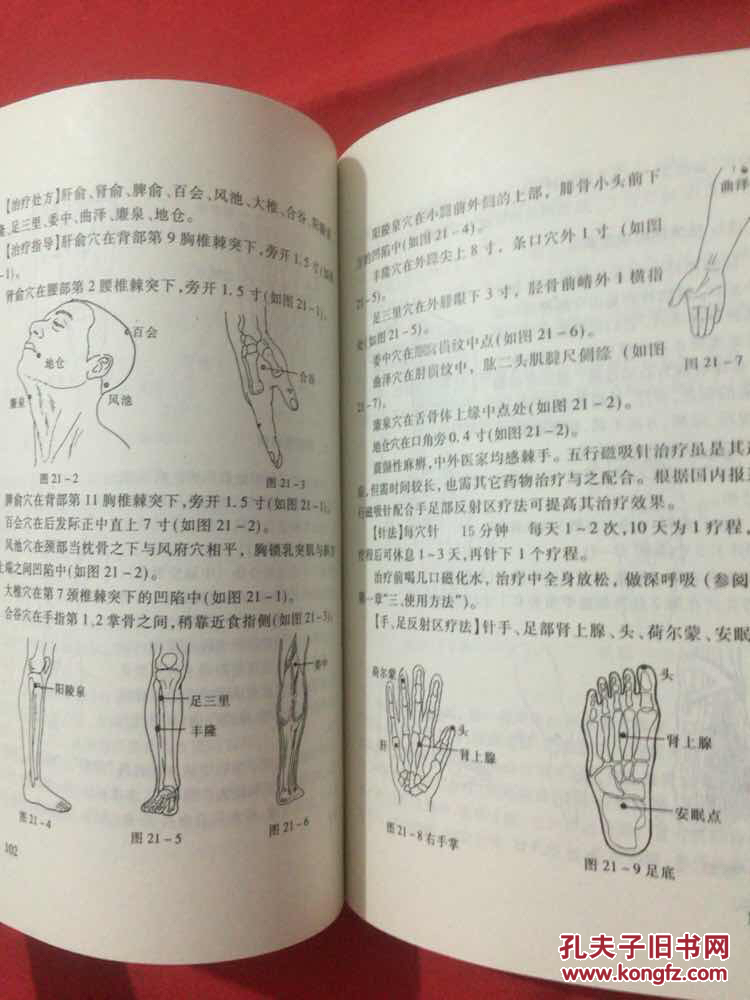 【治疗处方】肝俞、肾俞、脾俞、百会、风池、大椎、合谷、阳陵泉
隆、足三里、委中、曲泽、廉泉、地仓。
【治疗指导】肝俞穴在背部第9胸椎棘突下,旁开1.5寸(如图
-1)。
肾俞穴在腰部第2腰椎棘突下,旁开1.5寸(如图21-1)。
百会
地仓
廉泉
风池
合谷
图21-2
图21-3
脾俞穴在背部第11胸椎棘突下,旁开1.5寸(如图21-1)。
百会穴在后发际正中直上7寸(如图21-2)。
风池穴在颈部当枕骨之下与风府穴相平,胸锁乳突肌与斜方
上端之间凹陷中(如图21-2)。
大椎穴在第7颈椎棘突下的凹陷中(如图21-1)。
合谷穴在手指第1、2掌骨之间,稍靠近食指侧(如图21-3)。
阳陵泉
足三里
丰隆
委中
图21-4
图21-5
图21-6
102
阳陵泉穴在小腿前外侧的上部,腓骨小头前下
的凹陷中(如图21-4)。
丰隆穴在外踝尖上8寸,条口穴外1寸(如图
21-5)。
足三里穴在外膝眼下3寸,胫骨前嵴外1横指
处(如图21-5)。
委中穴在腘窝横纹中点(如图21-6)。
曲泽穴在肘窝横纹中,肱二头肌腱尺侧缘(如图
21-7)。
廉泉穴在舌骨体上缘中点处(如图21-2)。
地仓穴在口角旁0.4寸(如图21-2)。
曲泽
图21-7
震颤性麻痹,中外医家均感棘手。五行磁吸针治疗虽是其
,但需时间较长,也需其它药物治疗与之配合。根据国内报
行磁吸针配合手足部反射区疗法可提高其治疗效果。
【针法】每穴针 15分钟 每天1~2次,10天为1疗程,
疗程后可休息1~3天,再针下1个疗程。
治疗前喝几口磁化水,治疗中全身放松,做深呼吸(参阅
第一章“三、使用方法”)。
【手、足反射区疗法】针手、足部肾上腺、头、荷尔蒙、安眠
荷尔蒙
肝
头
肾上腺
头
肾上腺
安眠点
图21-8右手掌
图21-9足底
孔夫子旧书网
www.kongfz.com